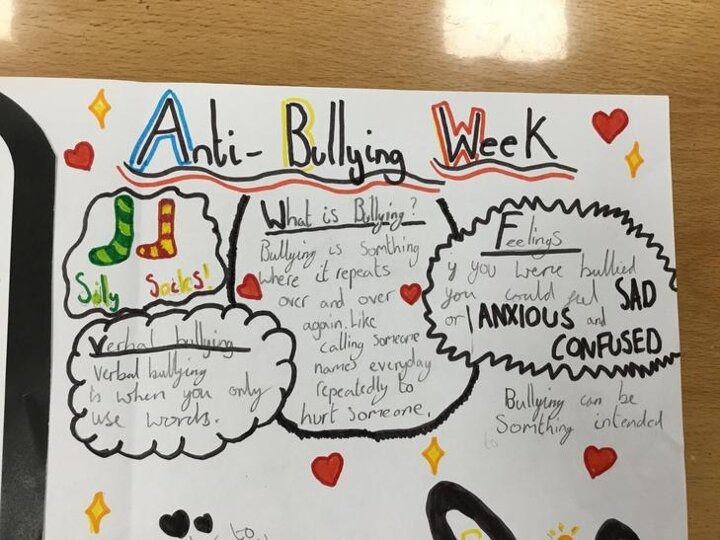 Anti-Bullying Week
Silly Socks!
What is Bullying?
Bullying is Somthing
where it repeats
over and over
again. Like
calling Someone
names everyday
repeatedly to
hurt Someone.
Feelings
if you were bullied
you could feel SAD
or ANXIOUS and
CONFUSED
Verbal bullying
Verbal bullying
is when you only
use words.
Bullying can be
Somthing intended
to
to